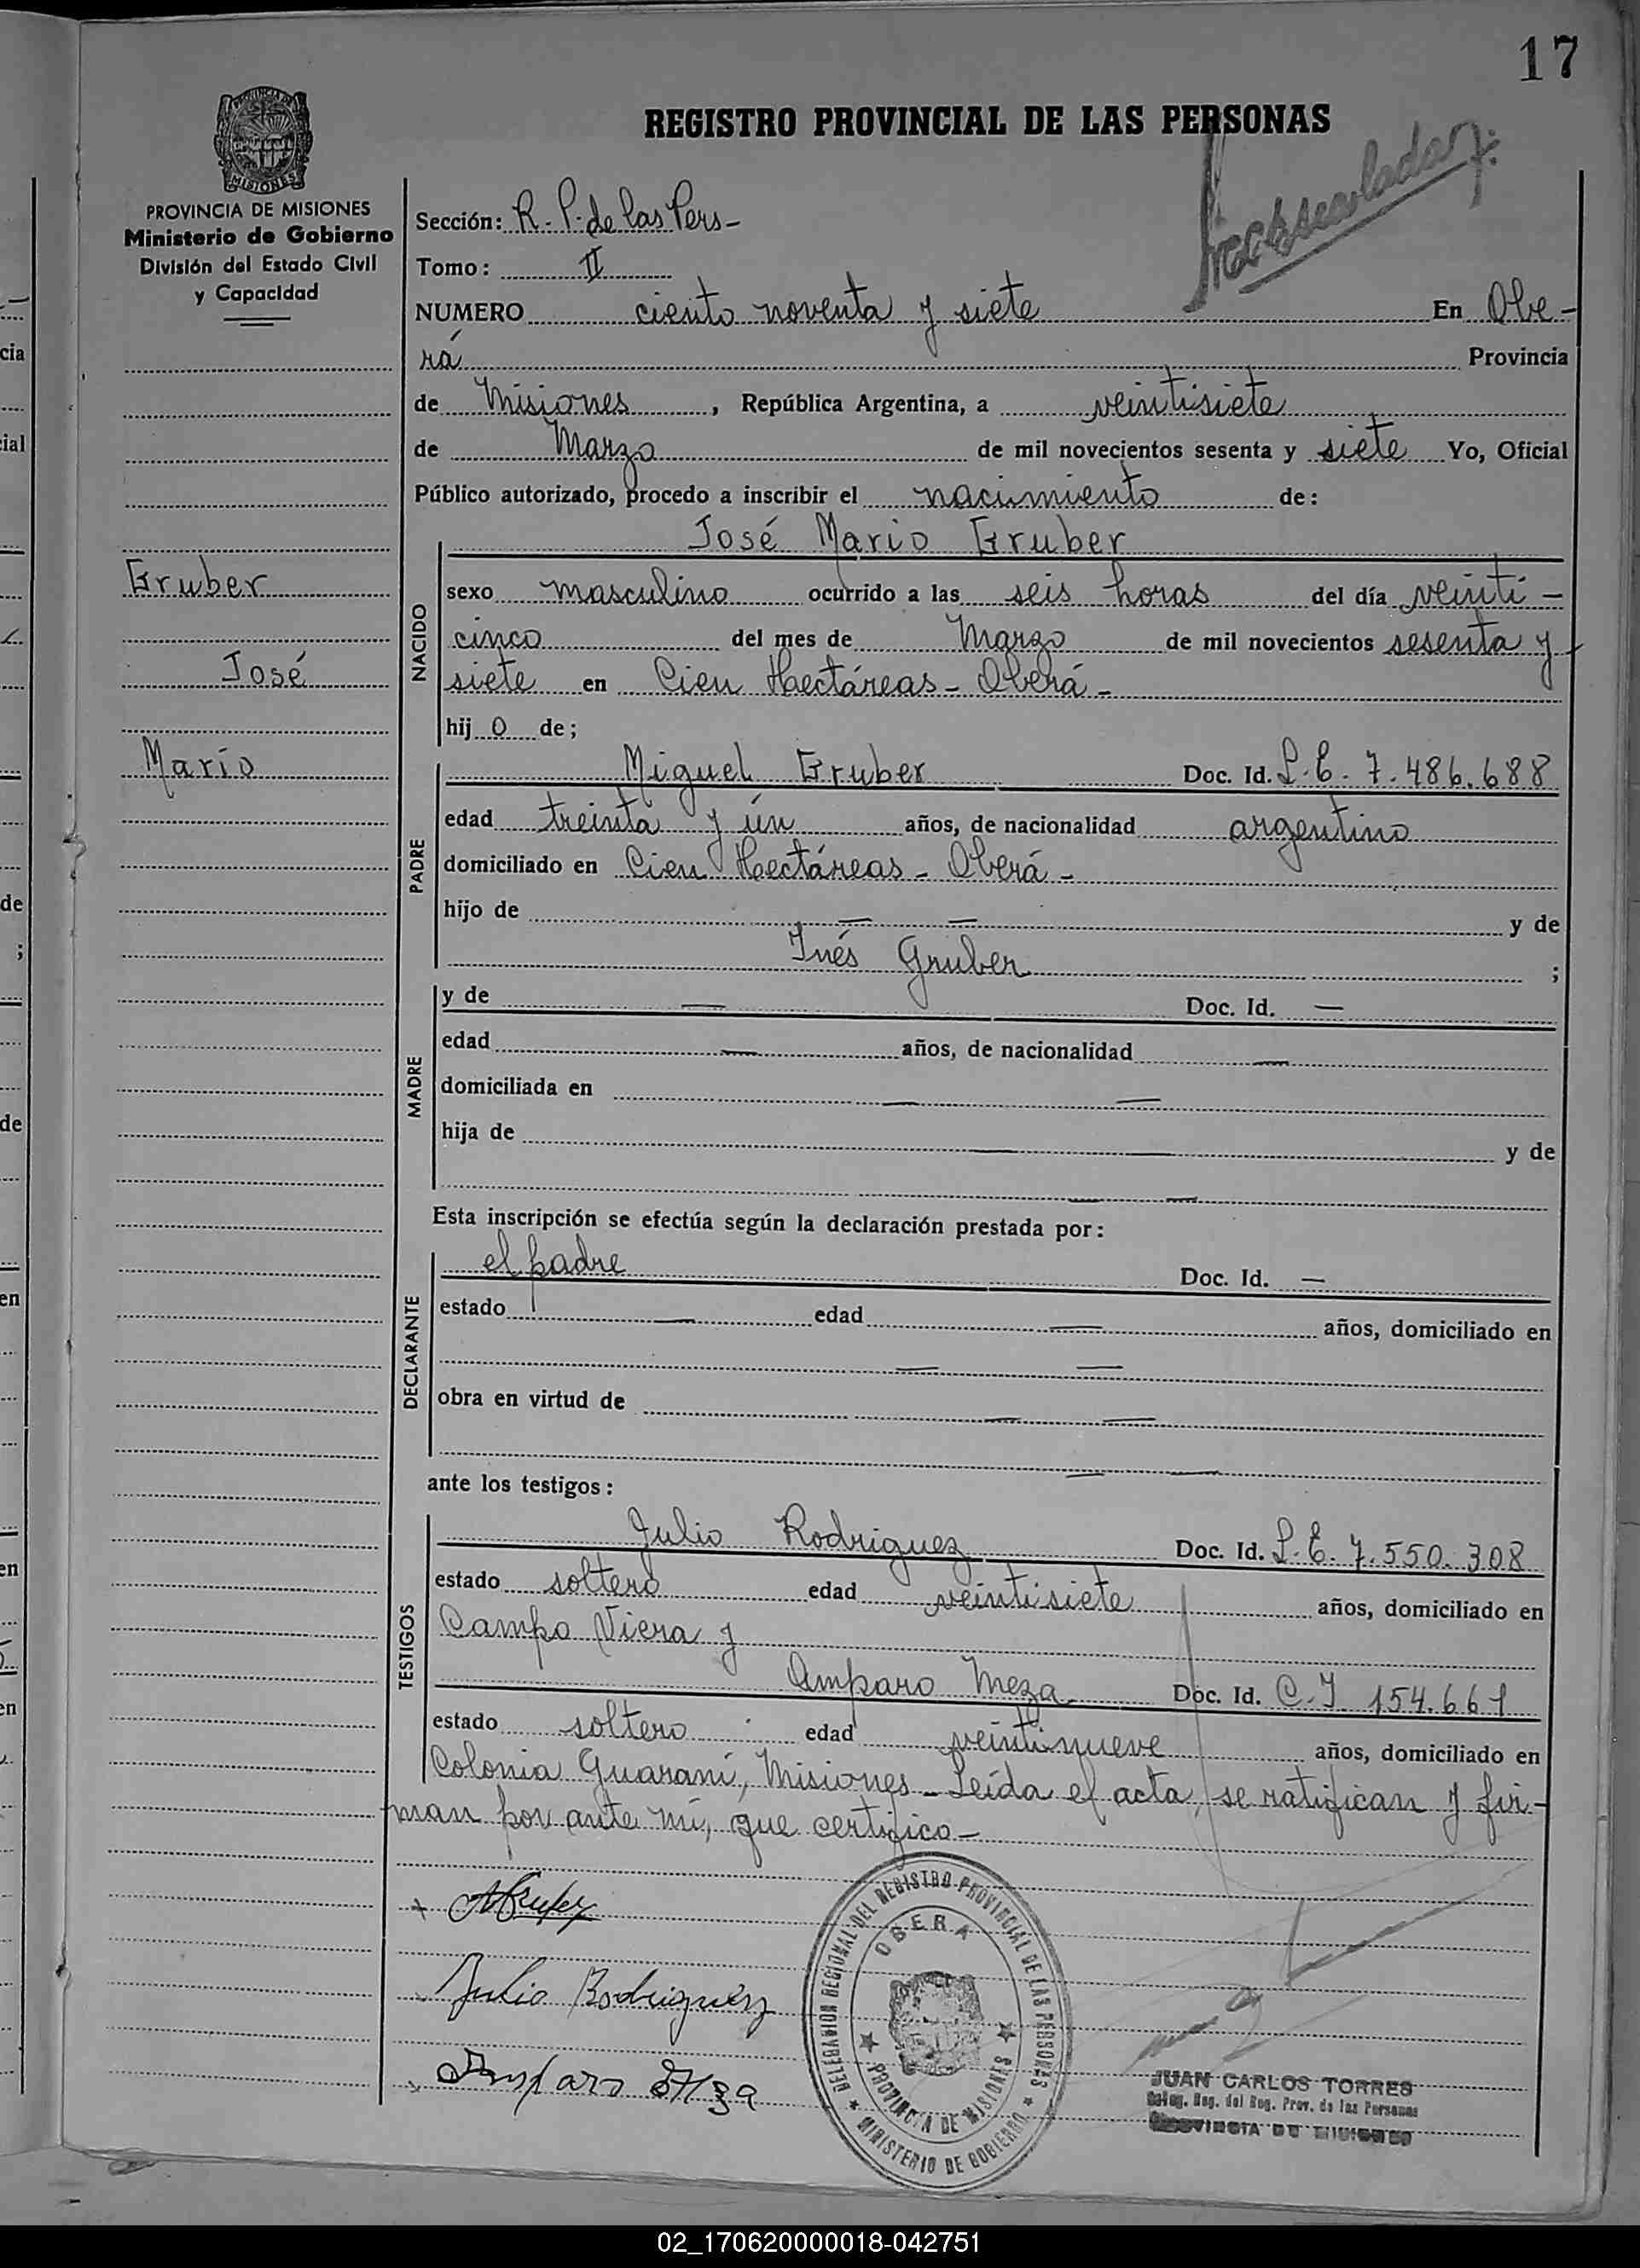 17
REGISTRO PROVINCIAL DE LAS PERSONAS
MISIONES
PROVINCIA DE MISIONES
Ministerio de Gobierno
División del Estado Civil
y Capacidad
Sección: R. P. de las Pers-
Tomo: II
NUMERO ciento noventa y siete En Obe-
rá Provincia
de Misiones, República Argentina, a veintisiete
de Marzo de mil novecientos sesenta y siete Yo, Oficial
Público autorizado, procedo a inscribir el nacimiento de:
José Mario Gruber
Gruber
José
Mario
NACIDO
sexo masculino ocurrido a las seis horas del día veinti-
cinco del mes de Marzo de mil novecientos sesenta y
siete en Cien Hectáreas - Oberá -
hij o de;
PADRE
Miguel Gruber Doc. Id. L. E. 7.486.688
edad treinta y ún años, de nacionalidad argentino
domiciliado en Cien Hectáreas - Oberá -
hijo de — — y de
Inés Gruber ;
MADRE
y de — Doc. Id. —
edad — años, de nacionalidad —
domiciliada en — —
hija de — — y de
— —
Esta inscripción se efectúa según la declaración prestada por:
DECLARANTE
el padre Doc. Id. —
estado — edad — años, domiciliado en
— —
obra en virtud de — —
— —
ante los testigos:
TESTIGOS
Julio Rodriguez Doc. Id. L. E. 7.550.308
estado soltero edad veintisiete años, domiciliado en
Campo Viera y
Amparo Meza Doc. Id. C. I 154.661
estado soltero edad veintinueve años, domiciliado en
Colonia Guaraní, Misiones - Leída el acta, se ratifican y fir-
man por ante mí, que certifico -
Julio Rodriguez
Amparo Meza
DELEGACION REGIONAL DEL REGISTRO PROVINCIAL DE LAS PERSONAS
OBERA
PROVINCIA DE MISIONES
MINISTERIO DE GOBIERNO
JUAN CARLOS TORRES
Deleg. Reg. del Reg. Prov. de las Personas
PROVINCIA DE MISIONES
cia
cial
de
;
de
en
en
en
02_170620000018-042751